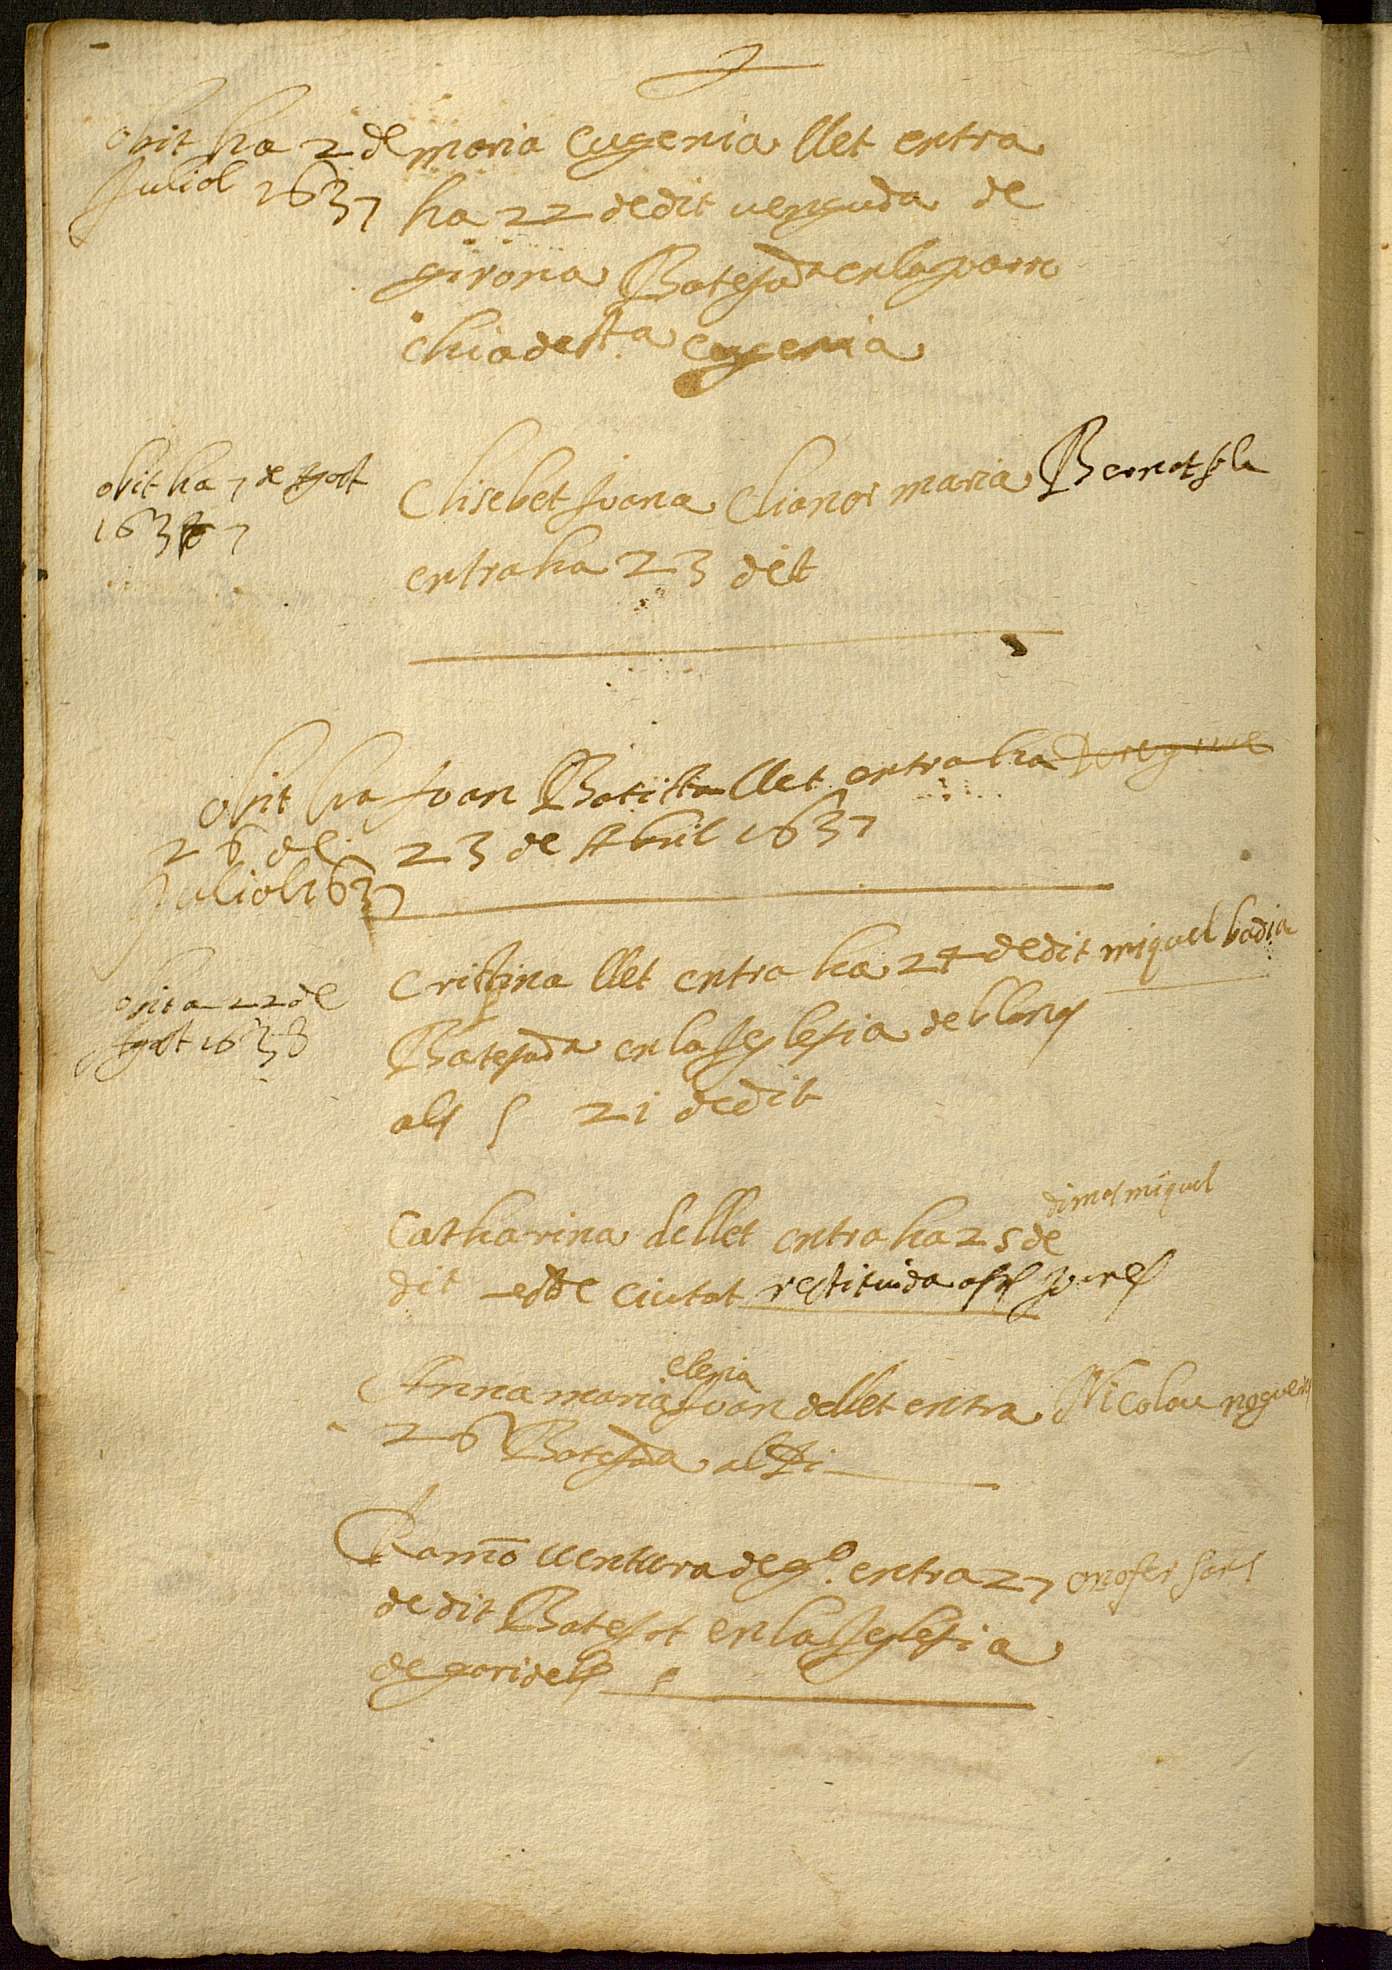 obit ha 2 de
Juliol 1637
maria eugenia llet entra
ha 22 de dit venguda de
girona Batejada en la parro
chia de Sta eugenia
obit ha 7 de Agost
1637
Elisebet Juana Elianor maria Bernat
entra ha 23 dit
obit ha
26 de
Juliol 1637
Juan Batista llet entra ha
23 de Abril 1637
obit a 22 de
Agost 1638
Cristina llet entra ha 24 de dit miquel badia
Batejada en la Iglesia de
als 21 de dit
dimas miquel
Catharina de llet entra ha 25 de
dit de ciutat restituida als pares
elena
Anna maria Juan de llet entra Nicolau noguera
26 Batejada
Ramõ Ventura de go. entra 27 onofer
de dit Batejat en la Iglesia
de garidels